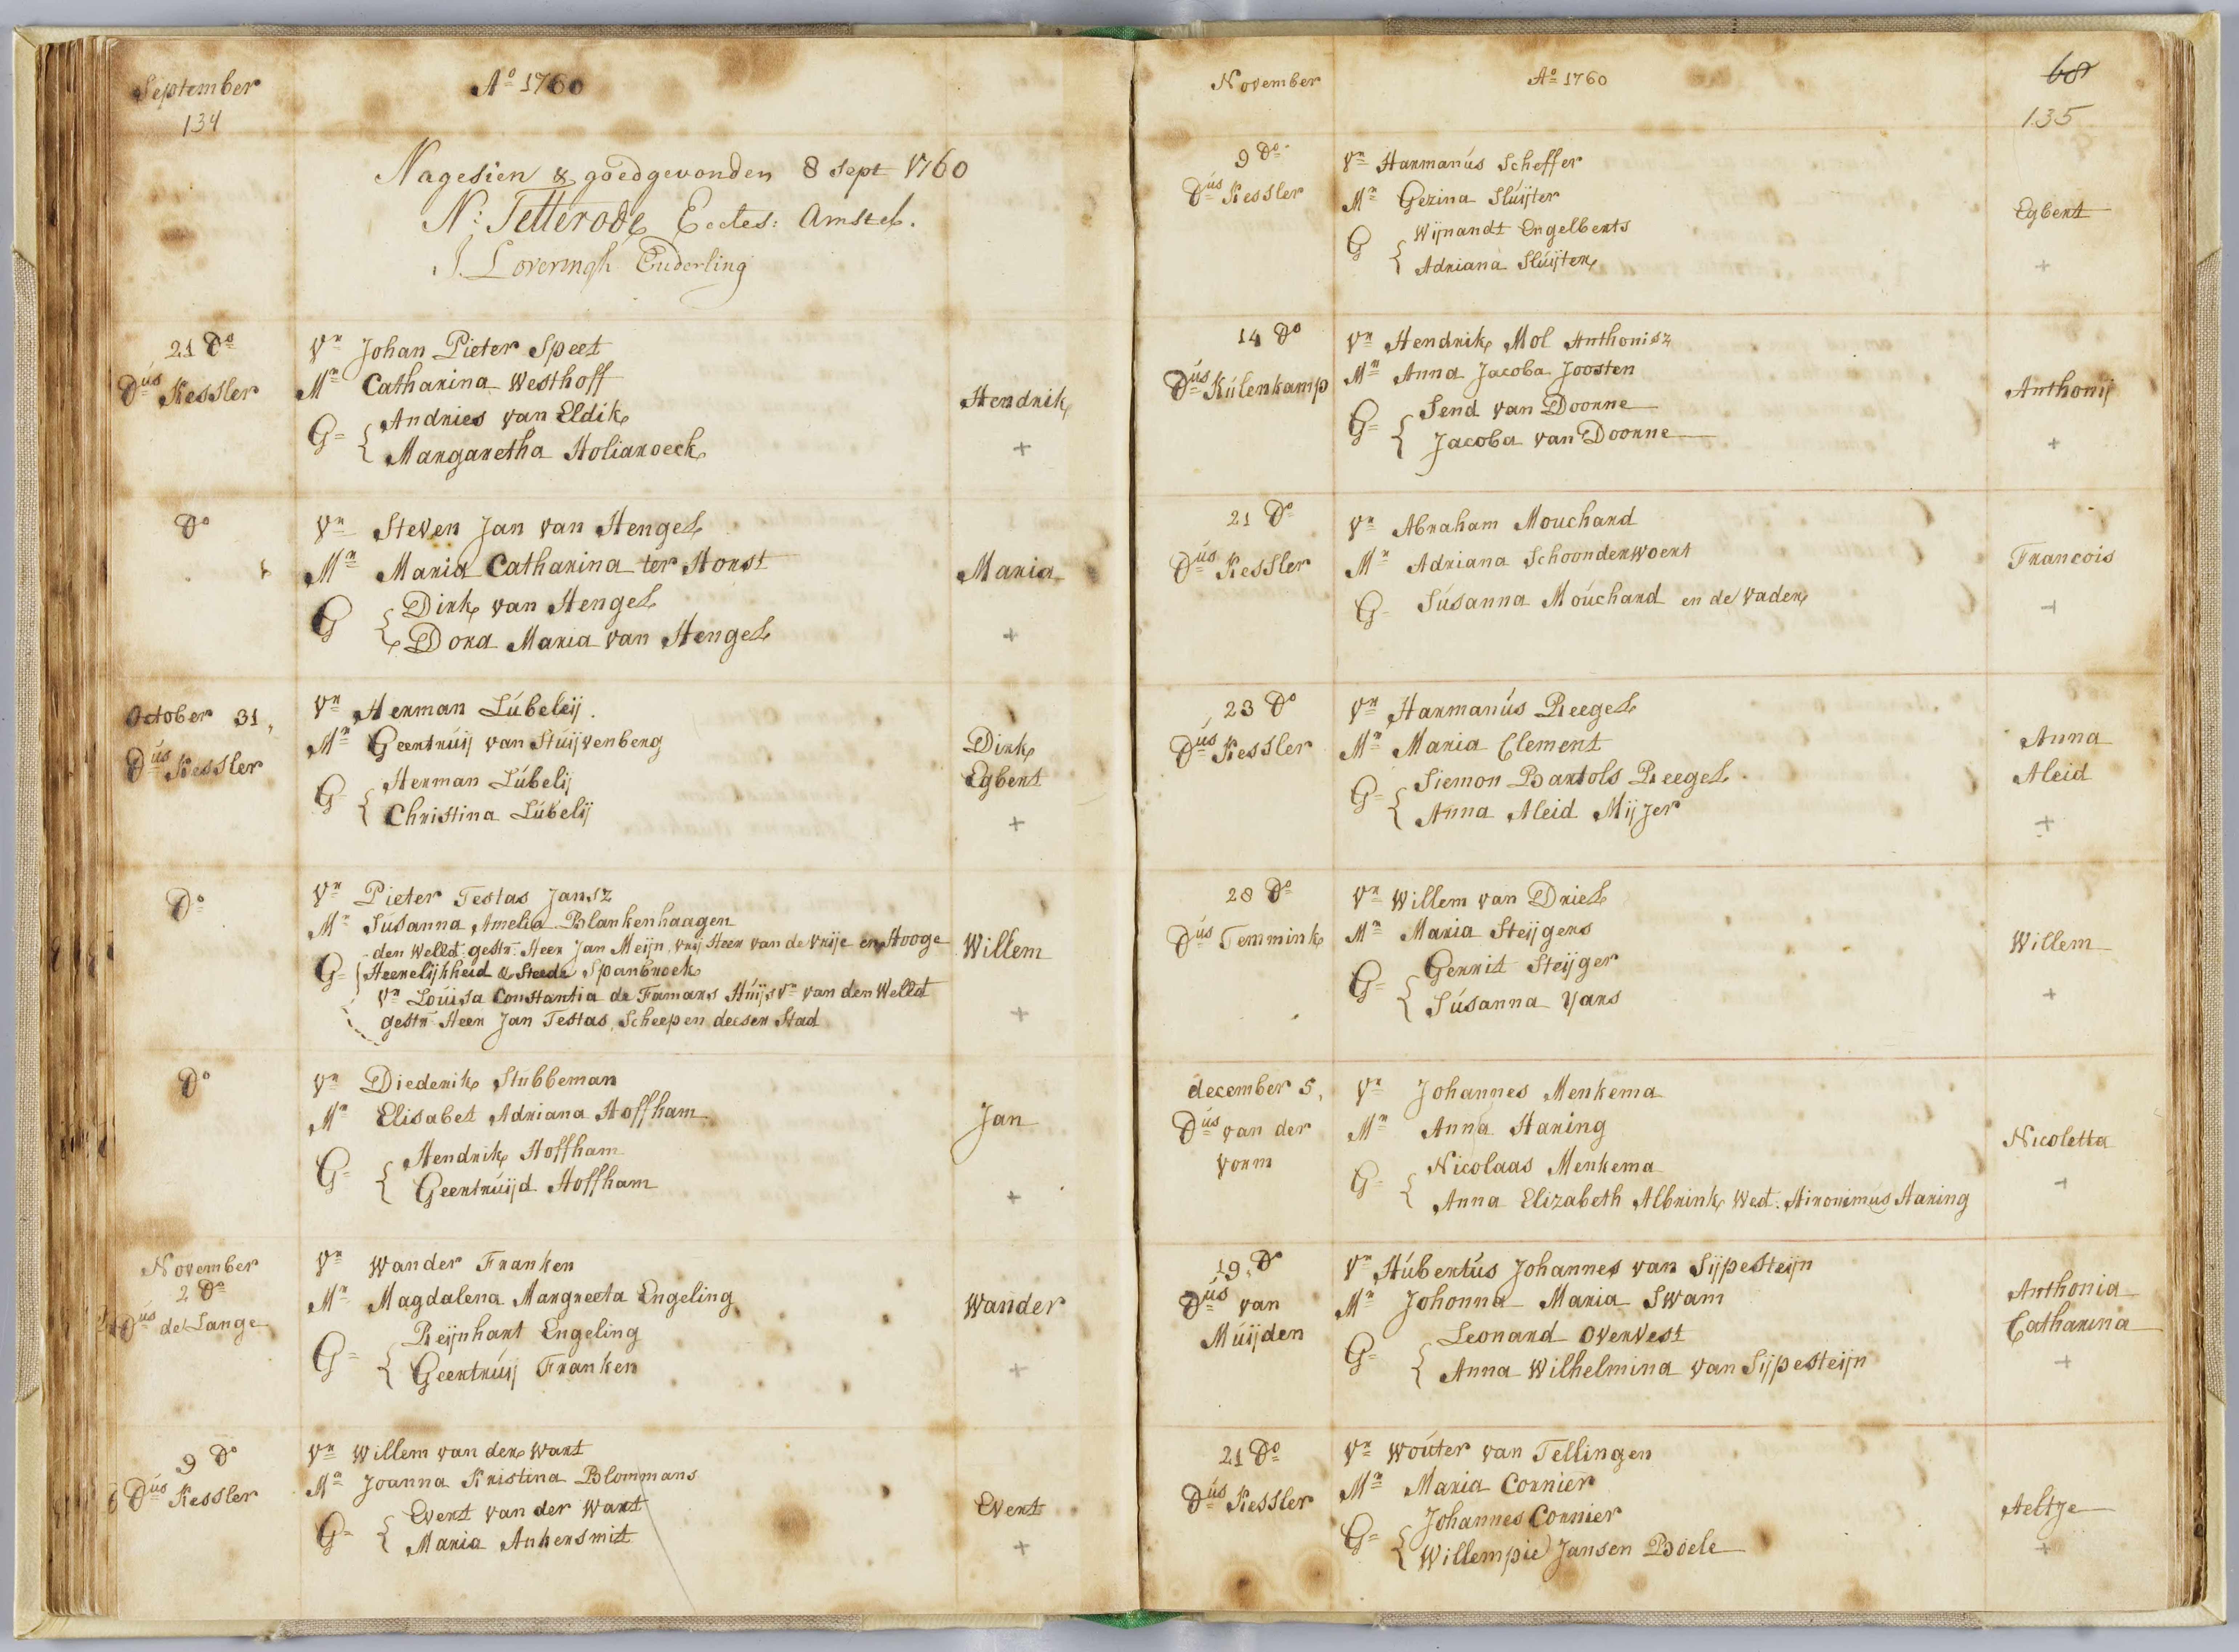 September
134
Ao 1760
Nagesien & goedgevonden 8 sept 1760
N: Tetterode Eccles: Amstel.
J. Loveringh Ouderling
21 Do
Dus Kessler
Vr Johan Pieter Speet
Mr Catharina Westhoff
G= Andries van Eldik
Margaretha Holiaroeck
Hendrik
+
Do
Vr Steven Jan van Hengel
Mr Maria Catharina ter Horst
G Dirk van Hengel
Dora Maria van Hengel
Maria
+
October 31,
Dus Kessler
Vr Herman Lúbeleij.
Mr Geertrúij van Stúijvenberg
G= Herman Lúbelij
Christina Lúbelij
Dirk
Egbert
+
Do
Vr Pieter Testas Jansz
Mr Súsanna Amelia Blankenhaagen
den Welld. gestr. Heer Jan Meijn, vrij Heer van de Vrije en Hooge
G= Heerelijkheid & Steede Spanbroek
Vr Loúisa Constantia de Famars Húijsvr van den Welld
gestr Heer Jan Testas, Scheepen deeser Stad
Willem
+
Do
Vr Diederik Stubbeman
Mr Elisabet Adriana Hoffham
G= Hendrik Hoffham
Geertrúijd Hoffham
Jan
+
November
2 Do
Dus de Lange
Vr Wander Franken
Mr Magdalena Margreeta Engeling
G= Reijnhart Engeling
Geertrúij Franken
Wander
+
9 Do
Dus Kessler
Vr Willem van der Wart
Mr Joanna Kristina Blommans
G= Evert van der Wart
Maria Ankersmit
Evert
+
November
Ao 1760
68
135
9 Do
Dus Kessler
Vr Harmanús Scheffer
Mr Gezina Slúijter
G Wijnandt Engelberts
Adriana Slúijter
Egbert
+
14 Do
Dus Kúlenkamp
Vr Hendrik Mol Anthonisz
Mr Anna Jacoba Joosten
G= Send van Doorne
Jacoba van Doorne
Anthonij
+
21 Do
Dus Kessler
Vr Abraham Mouchard
Mr Adriana Schoonderwoert
G= Súsanna Moúchard en de Vader
Francois
+
23 Do
Dus Kessler
Vr Harmanús Reegel
Mr Maria Clement
G= Siemon Bartols Reegel
Anna Aleid Mijjer
Anna
Aleid
+
28 Do
Dus Temmink
Vr Willem van Driel
Mr Maria Steijgers
G= Gerrit Steijger
Súsanna Yars
Willem
+
december 5,
Dus van der
Vorm
Vr Johannes Menkema
Mr Anna Haring
G= Nicolaas Menkema
Anna Elizabeth Albrink Wed. Hironimus Haring
Nicoletta
+
19, Do
Dus van
Múijden
Vr Húbertús Johannes van Sijpesteijn
Mr Johonna Maria Swam
G= Leonard Overvest
Anna Wilhelmina van Sijpesteijn
Anthonia
Catharina
+
21 Do
Dus Kessler
Vr Woúter van Tellingen
Mr Maria Cornier
G= Johannes Cornier
Willempie Jansen Boele
Aeltje
+